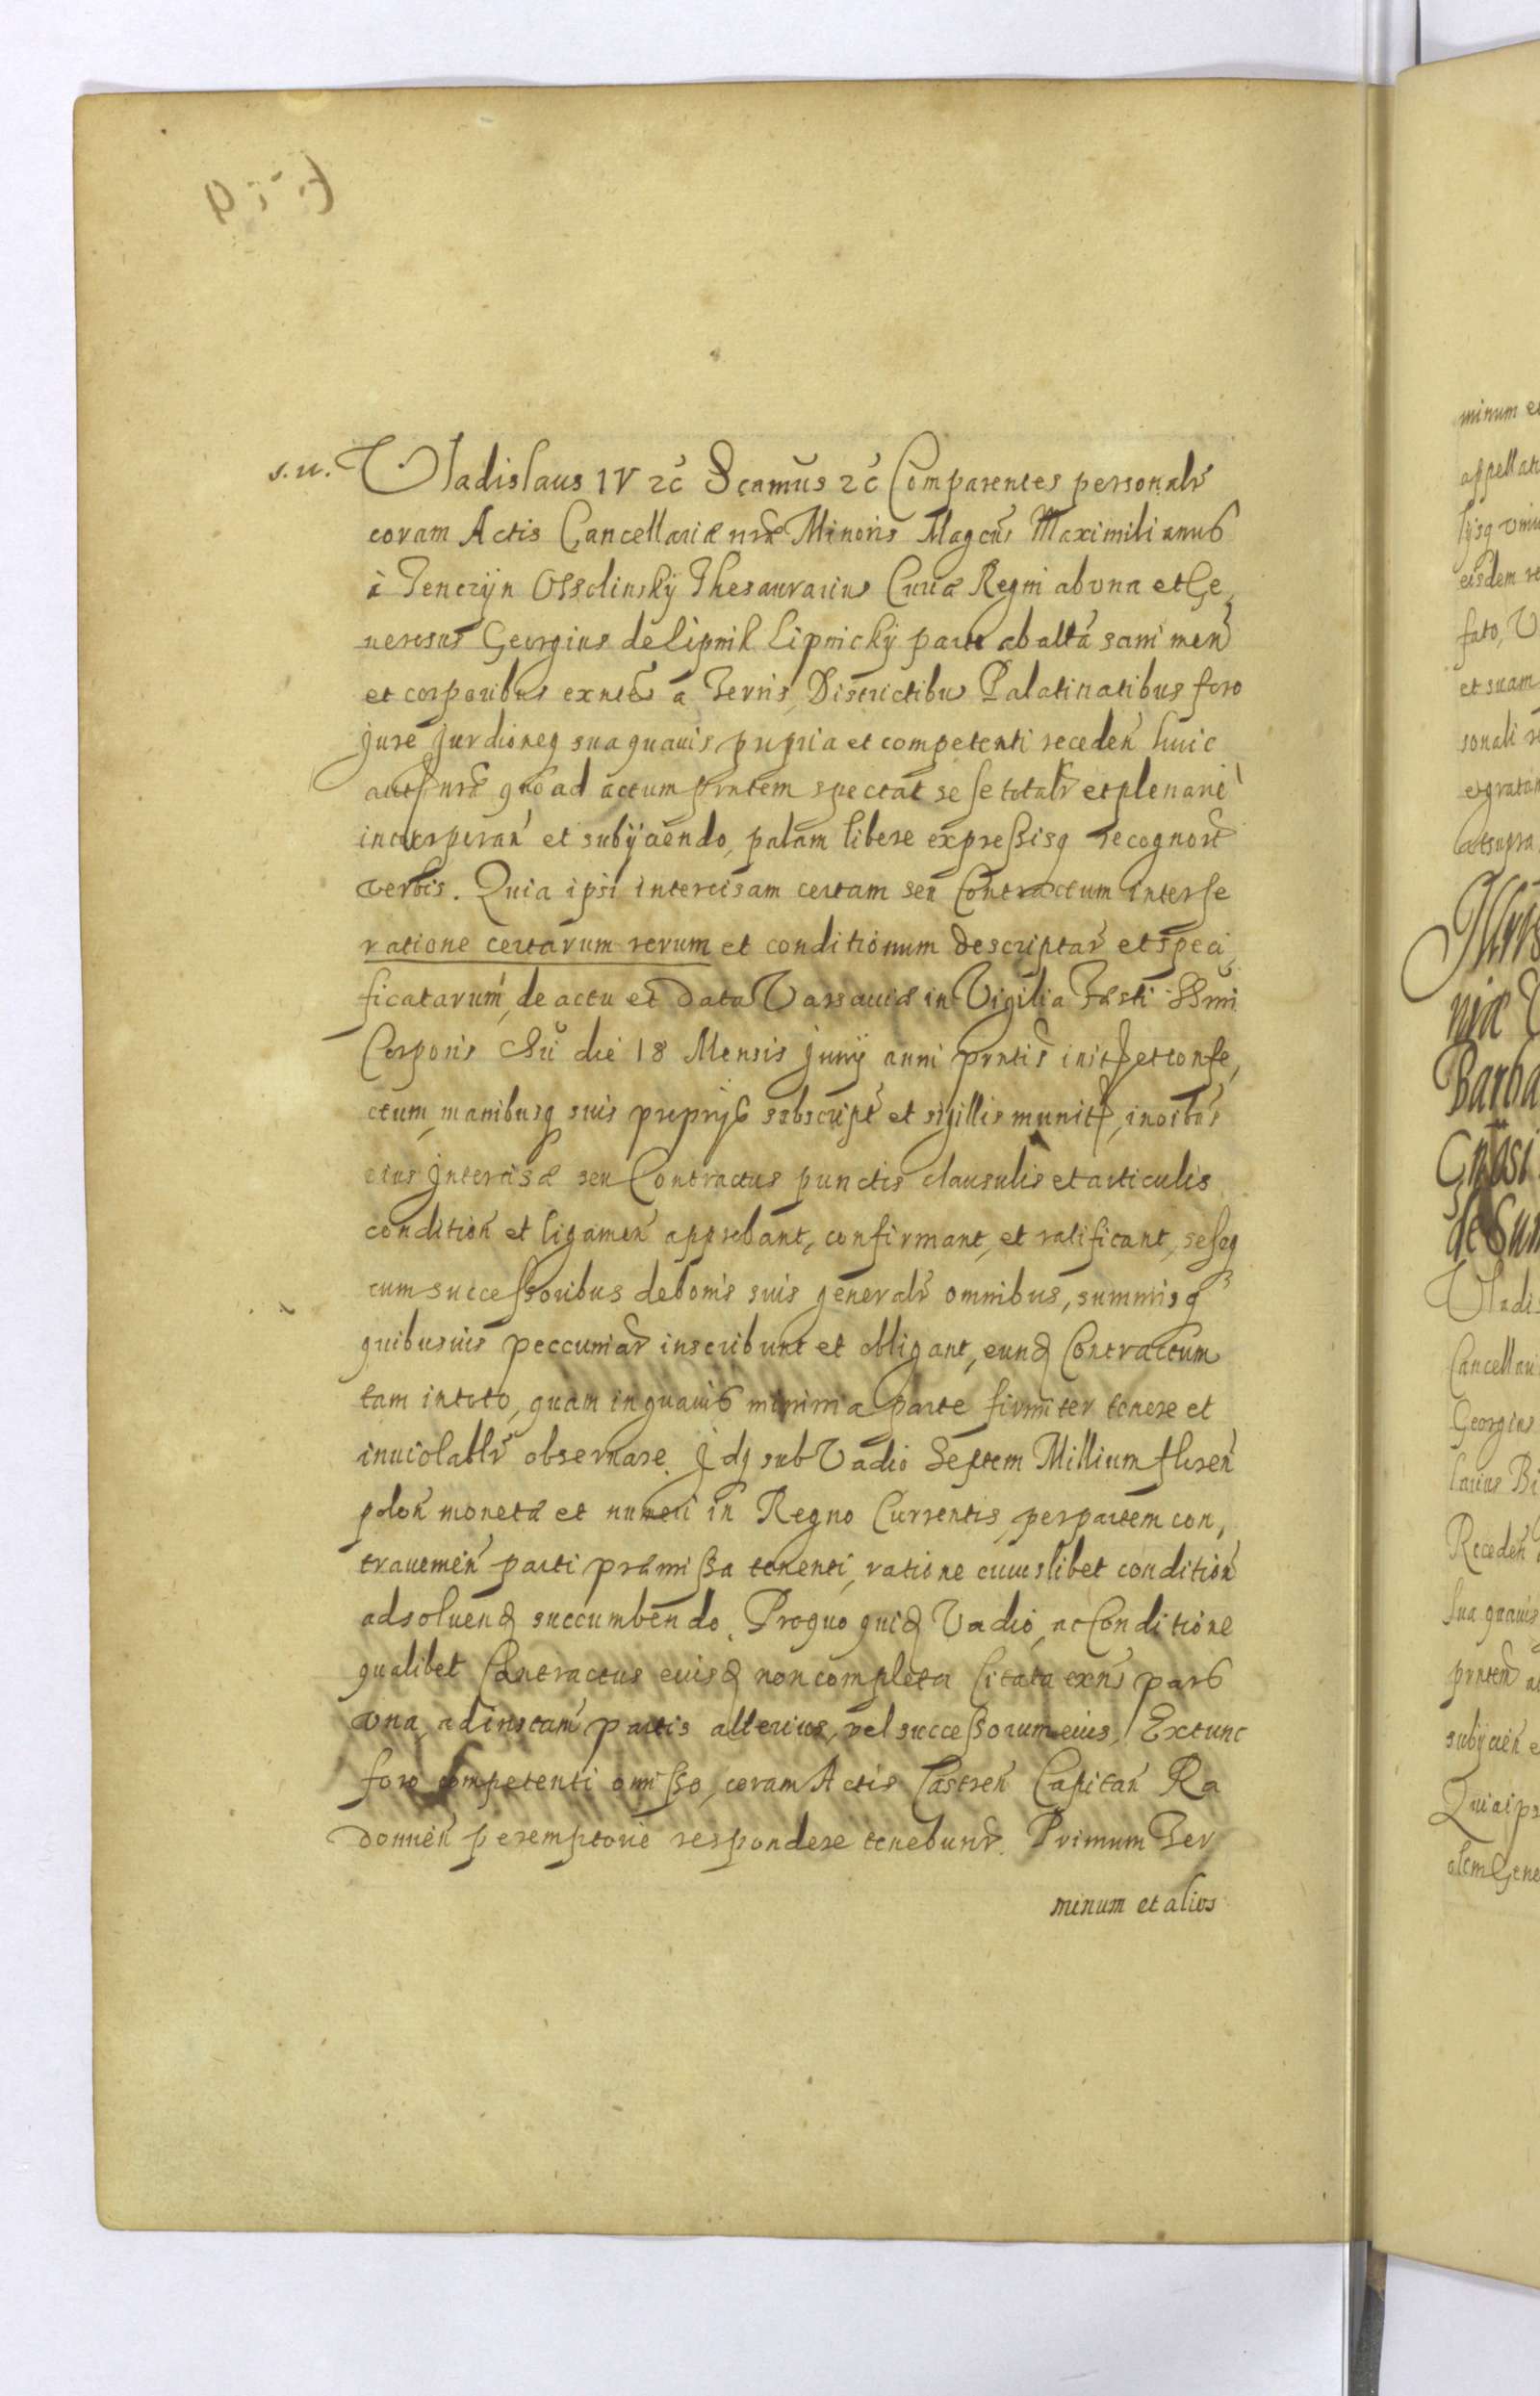 s. u. Vladislaus IV zc̃ Scamus zc̃ Comparentes personalr̃
coram Actis Cancellariæ nræ Minoris Magcus Maximilianus
à Tenczyn Ossolinsky Thesaurarius Curiæ Regni ab una et Ge,
nerosus Georgius de Lipnik Lipnicky parte ab altã sani men̄
et corporibus exntes a Terris, Districtibus Palatinatibus foro
jure jurdioneq sua quavis propria et competenti receden̄ huic
aut nrã quo ad actum pntem spectat sese totalr̃ et plenariè
incorporan̄ et subijciendo, palam libere expressisq recognort
verbis. Quia ipsi intercisam certam seu Contractum inter se
ratione certarum rerum et conditionum descriptar̃ et speci,
ficatarum, de actu et data Varsaviæ in Vigilia Festi SSmi
Corporis Chri die 18 Mensis Junij anni pntis init et confe,
ctum, manibusq suis proprijs subscript et sigillis munit, in oibus
eius Intercisæ seu Contractus punctis clausulis et articulis
condition̄ et ligamen̄ approbant, confirmant, et ratificant, seseq
cum successoribus de bonis suis generalr̃ omnibus, summisq
quibusvis peccuniar̃ inscribunt et obligant, eund Contractum
tam in toto, quam in quavis minima parte firmiter tenere et
inviolablr̃ observare. Idq sub Vadio Septem Millium floren̄
polon̄ monetæ et numeri in Regno Currentis, per partem con,
travenien̄ parti præmissa tenenti, ratione cuiuslibet condition̄
adsoluend succumbendo. Pro quo quid Vadio, ac Conditione
qualibet Contractus eiusd non completa Citata exns pars
una, ad instan̄ partis alterius, vel successorum eius, Extunc
foro competenti omisso, coram Actis Castren̄ Capitan̄ Ra
domien̄ peremptorie respondere tenebunr̃. Primum Ter
minum et alios
minum e
appell
eisdem
fato, V
et suam
sonali
et grata
at supra
Barba
de Sum
Vladis
Cancellari
Georgius
Receden̄
sua quavis
Quia ips